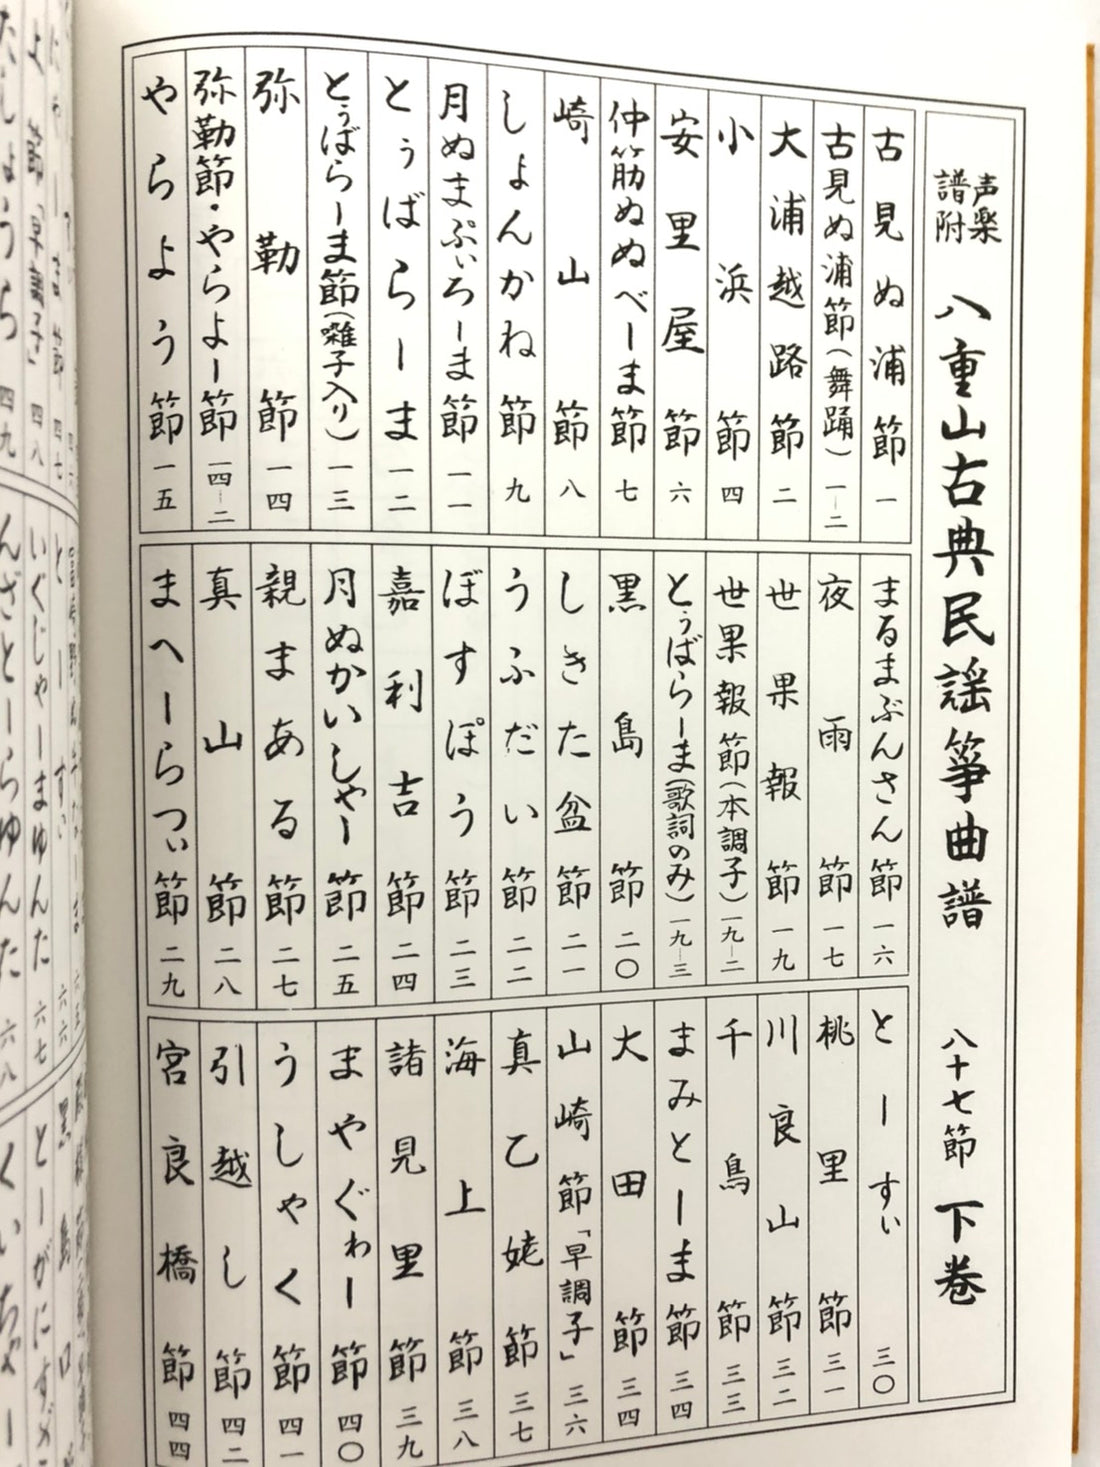 声楽譜附 八重山古典民謡箏曲譜 八十七節 下巻
古見ぬ浦節 一
古見ぬ浦節(舞踊) 一-二
大浦越路節 二
小浜節 四
安里屋節 六
仲筋ぬぬべーま節 七
崎山節 八
しょんかね節 九
月ぬまぷぃろーま節 一一
とぅばらーま 一二
とぅばらーま節(囃子入り) 一三
弥勒節 一四
弥勒節・やらよー節 一四-二
やらよう節 一五
まるまぶんさん節 一六
夜雨節 一七
世果報節 一九
世果報節(本調子) 一九-二
とぅばらーま(歌詞のみ) 一九-三
黒島節 二〇
しきた盆節 二一
うふだい節 二二
ぼすぽう節 二三
嘉利吉節 二四
月ぬかいしゃー節 二五
親まある節 二七
真山節 二八
まへーらつぃ節 二九
とーすぃ 三〇
桃里節 三一
川良山節 三二
千鳥節 三三
まみとーま節 三四
大田節 三四
山崎節「早調子」 三六
真乙姥節 三七
海上節 三八
諸見里節 三九
まやぐゎー節 四〇
うしゃく節 四一
引越し節 四二
宮良橋節 四四